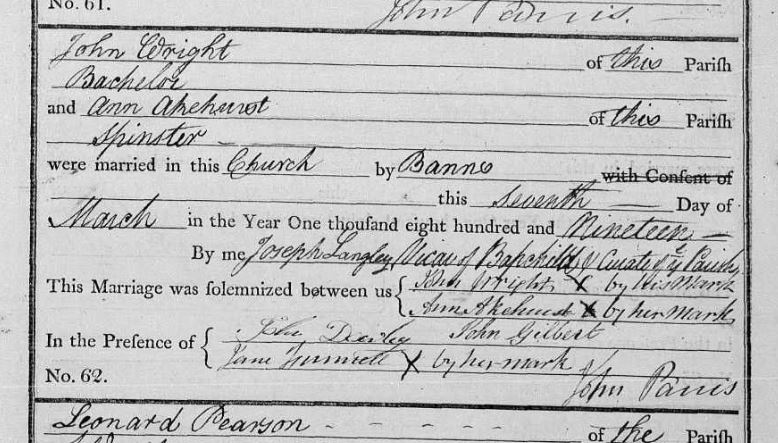 No. 61.
John
John Wright of this Pariſh
Bachelor
and Ann Akehurst of this Pariſh
Spinster
were married in this Church by Banns with Conſent of
this Seventh Day of
March in the Year One thouſand eight hundred and Nineteen
By me Joseph Langley Vicar of Bapchild & Curate of ye Parish
This Marriage was ſolemnized between us { John Wright X by his Mark
Ann Akehurst X by her Mark
In the Preſence of { John Gilbert
Jane X by her mark
No. 62. John
Leonard Pearson of the Pariſh